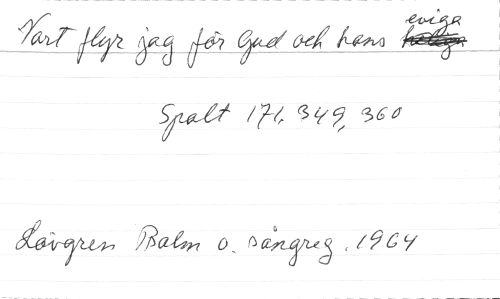 Vart flyr jag för Gud och hans eviga
Spalt 171, 349, 360
Lövgren Psalm o. sångreg. 1964